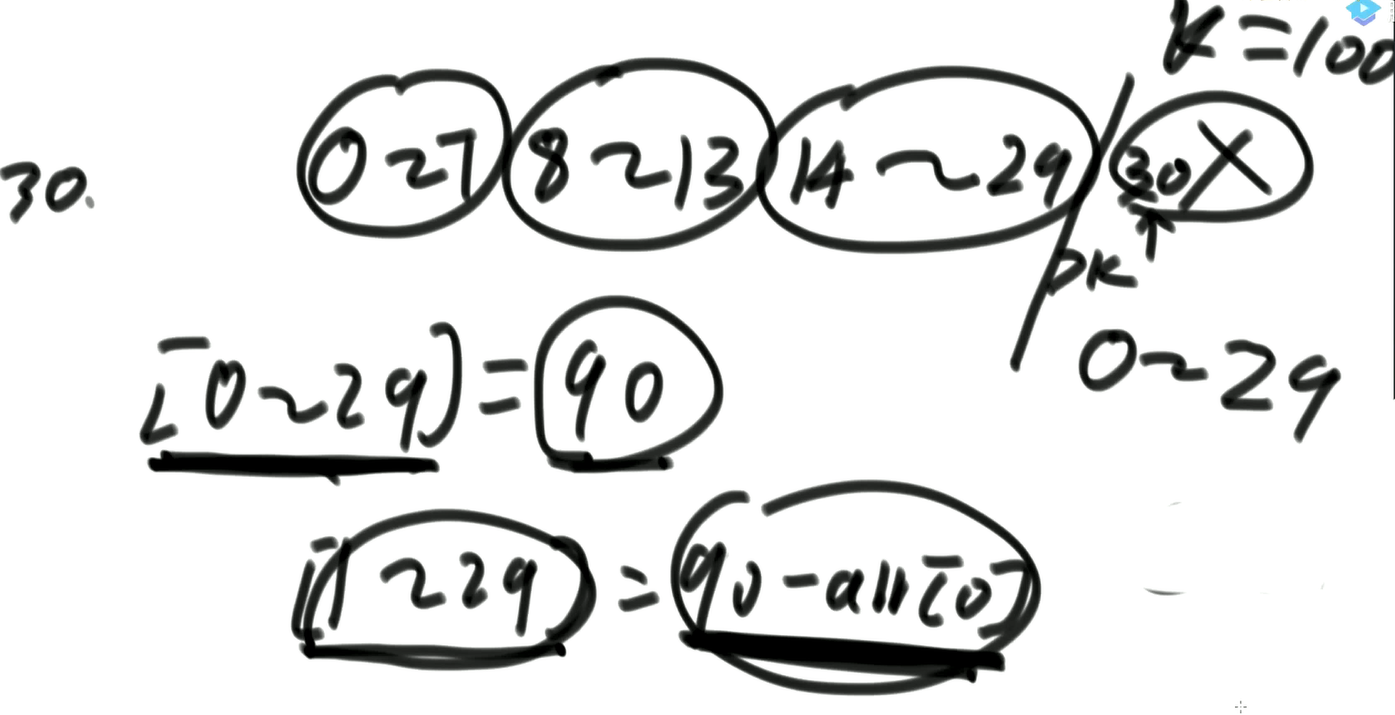 K=100
30. 0~7 8~13 14~29 30X
OK↑
0~29
[0~29]=90
[1~29]=90-arr[0]